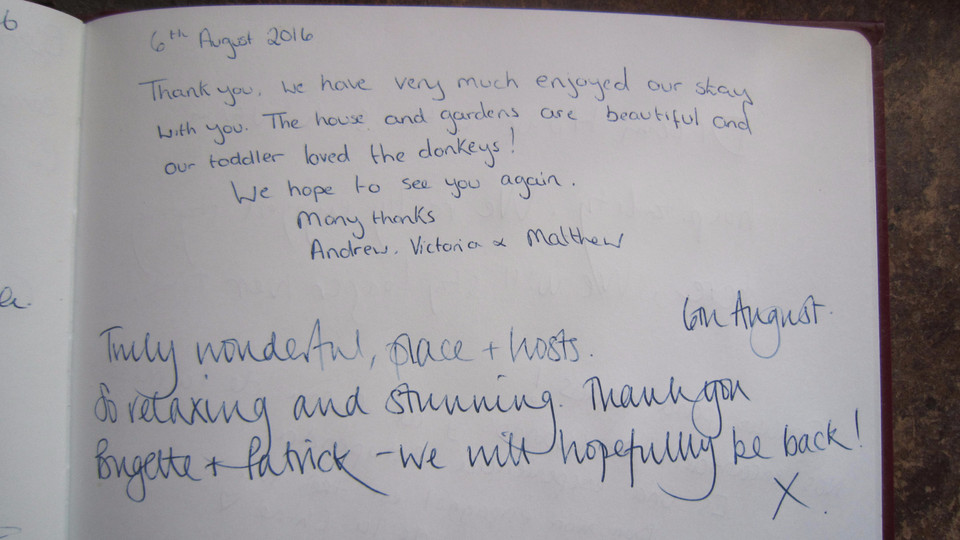 6
6th August 2016
Thank you. We have very much enjoyed our stay
with you. The house and gardens are beautiful and
our toddler loved the donkeys!
We hope to see you again.
Many thanks
Andrew, Victoria & Matthew
6th August.
Truly wonderful, place + hosts.
So relaxing and stunning. Thank you
Brigette + Patrick - we will hopefully be back!
X.